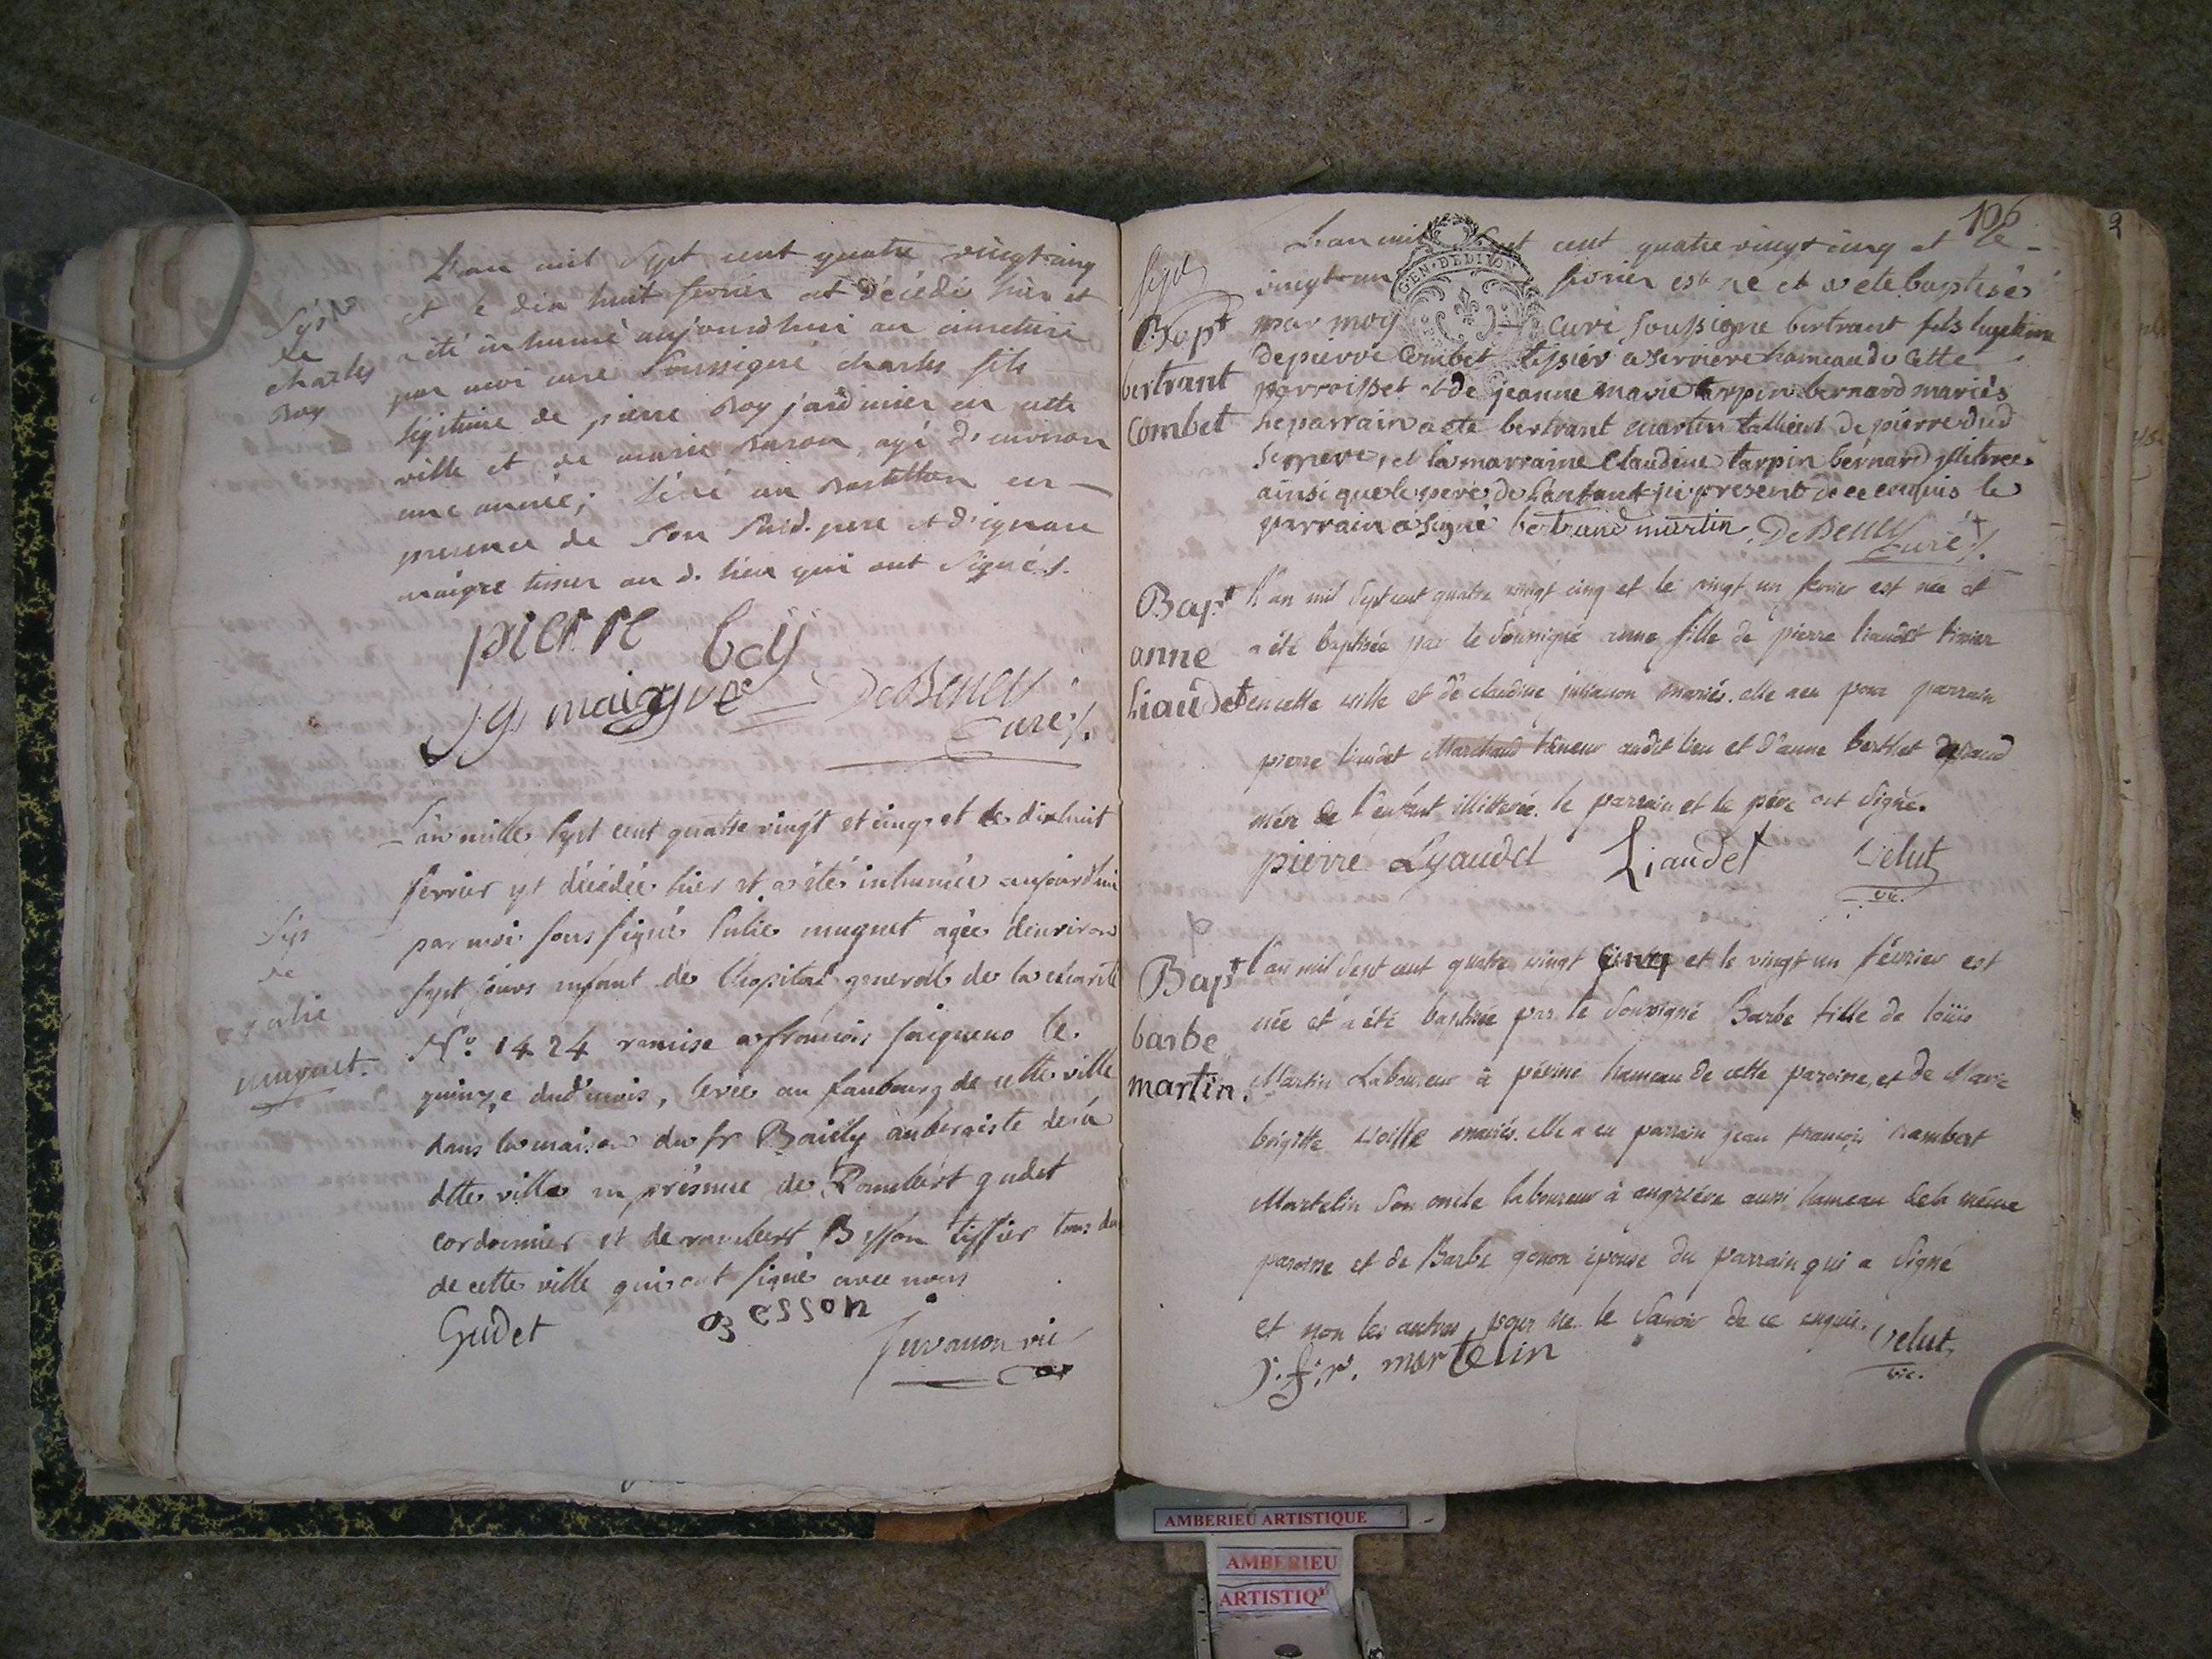 L'an mil sept cent quatre vingt cinq
et le dix huit fevrier est décédé hier et
a été inhumé aujourdhui au cimetiere
par moi curé soussigné charles fils
legitime de pierre Boy jardinier en cette
ville et de marie agé d'environ
une année; levé au en
presence de son sud. pere et d'
maigre tissier au d. lieu qui ont signés.
Sep
de
charles
Boy
pierre boy
maigre De Beney
curé
L'an mille sept cent quatre vingt et cinq et le dixhuit
fevrier est décédée hier et a étée inhumée aujourdhui
par moi soussigné Julie muguet agée denviron
sept jours enfant de l'hopital general de la charité
N.o 1424 remise a francois le
quinze dud. mois, levée au faubourg de cette ville
dans la maison du sr Bailly aubergiste de la
dtte ville en présence de Rambert gudet
cordonnier et de rambert Besson tissier tous deux
de cette ville qui ont signé avec nous
Sep
de
Julie
muguet.
Gudet Besson
Juvanon vic
106
L'an mil sept cent quatre vingt cinq et le
vingt un fevrier est né et a ete baptisé
GEN. DE DIJON
par moy curé soussigné bertrant fils legitime
de pierre Combet tissier a Serviere hameau de cette
parroisse et de jeanne marie tarpin bernard mariés
le parrain a ete bertrant martin de pierre dud
et la marraine Claudine tarpin bernard
ainsi que le pere de lenfant ici present de ce enquis le
parrain a signé bertrand martin De Beney
curé
Bapt
bertrant
Combet
l'an mil sept cent quatre vingt cinq et le vingt un fevrier est née et
a été baptisée par le soussigné anne fille de pierre liaudet
en cette ville et de claudine juvanon mariés. elle a eu pour parrain
pierre liaudet Marchand taneur audit lieu et d'anne berthet
mére de l'enfant illitterée. le parrain et le pére ont signé.
Bapt
anne
liaudet
pierre Lyaudet Liaudet Velut
vic.
l'an mil sept cent quatre vingt cinq et le vingt un février est
née et a été baptisée par le soussigné Barbe fille de loüis
Martin Laboureur à hameau de cette paroisse, et de Marie
brigitte mariés. elle a eu parrain jean françois rambert
Martelin son oncle laboureur à aussi hameau de la même
paroisse et de Barbe genon épouse du parrain qui a signé
et non les autres pour ne le savoir de ce enquis.
Bapt
barbe
martin.
j. f. r. martelin Velut
vic.
AMBERIEU ARTISTIQUE
AMBERIEU
ARTISTIQ